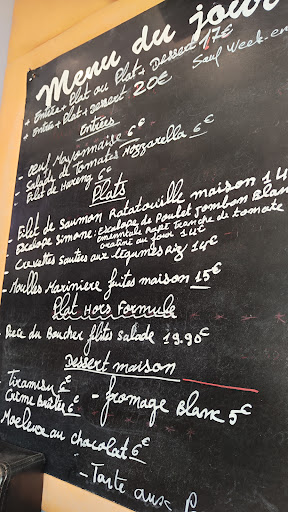 Menu du jour
+ Entrée + Plat ou Plat + Dessert 17€
+ Entrée + Plat + Dessert 20€ Sauf Week en
Entrées
- Oeuf Mayonnaise 6€
- Salade de Tomates Mozzarella 6€
- Filet de Hareng 6€
Plats
- Filet de Saumon Ratatouille maison 14
- Escalope Simone: Escalope de Poulet Jombon Blan
Emmentale Rapé Tranche de tomate
Gratiné au four 14€
- Crevettes Sautées aux légumes Riz 14€
- Moulles Marinière frites maison 15€
Plat Hors Formule
- Pièce du Boucher frites Salade 19.90€
Dessert maison
Tiramisu 6€
Crème Brûlée 6€ - fromage Blanc 5€
Moeleux au chocolat 6€
- Tarte aux